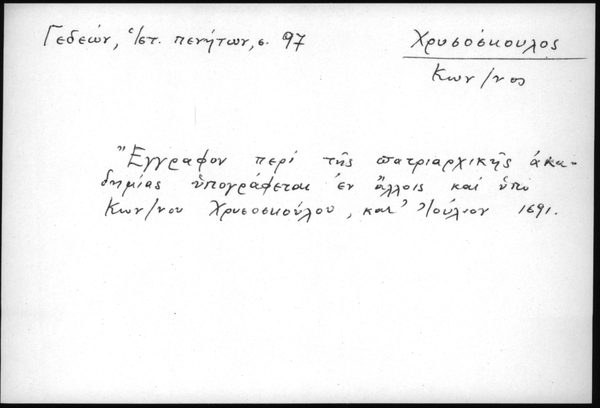 Γεδεών, Ἱστ. πενήτων, σ. 97
Χρυσόσκουλος
Κων/νος
Ἔγγραφον περί τῆς πατριαρχικῆς ἀκα-
δημίας ὑπογράφεται ἐν ἄλλοις καί ὑπό
Κων/νου Χρυσοσκούλου, κατ' Ἰούλιον 1691.